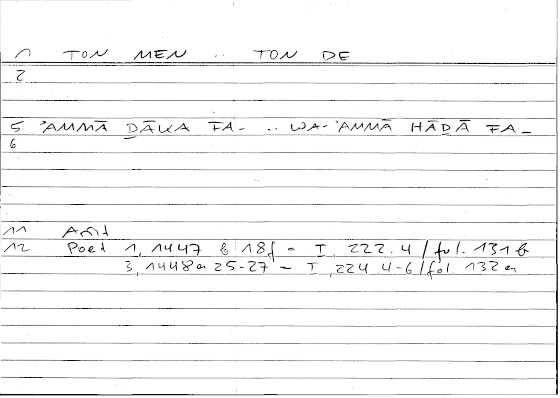 1 TON MEN .. TON DE
2
5 ʾAMMĀ ḎĀKA FA- .. WA-ʾAMMĀ HĀḎĀ FA-
6
11 Arist
12 Poet 1, 1447 b 18f - I, 222.4 / fol. 131 b
3, 1448 a 25-27 - I, 224 4-6 / fol. 132 a